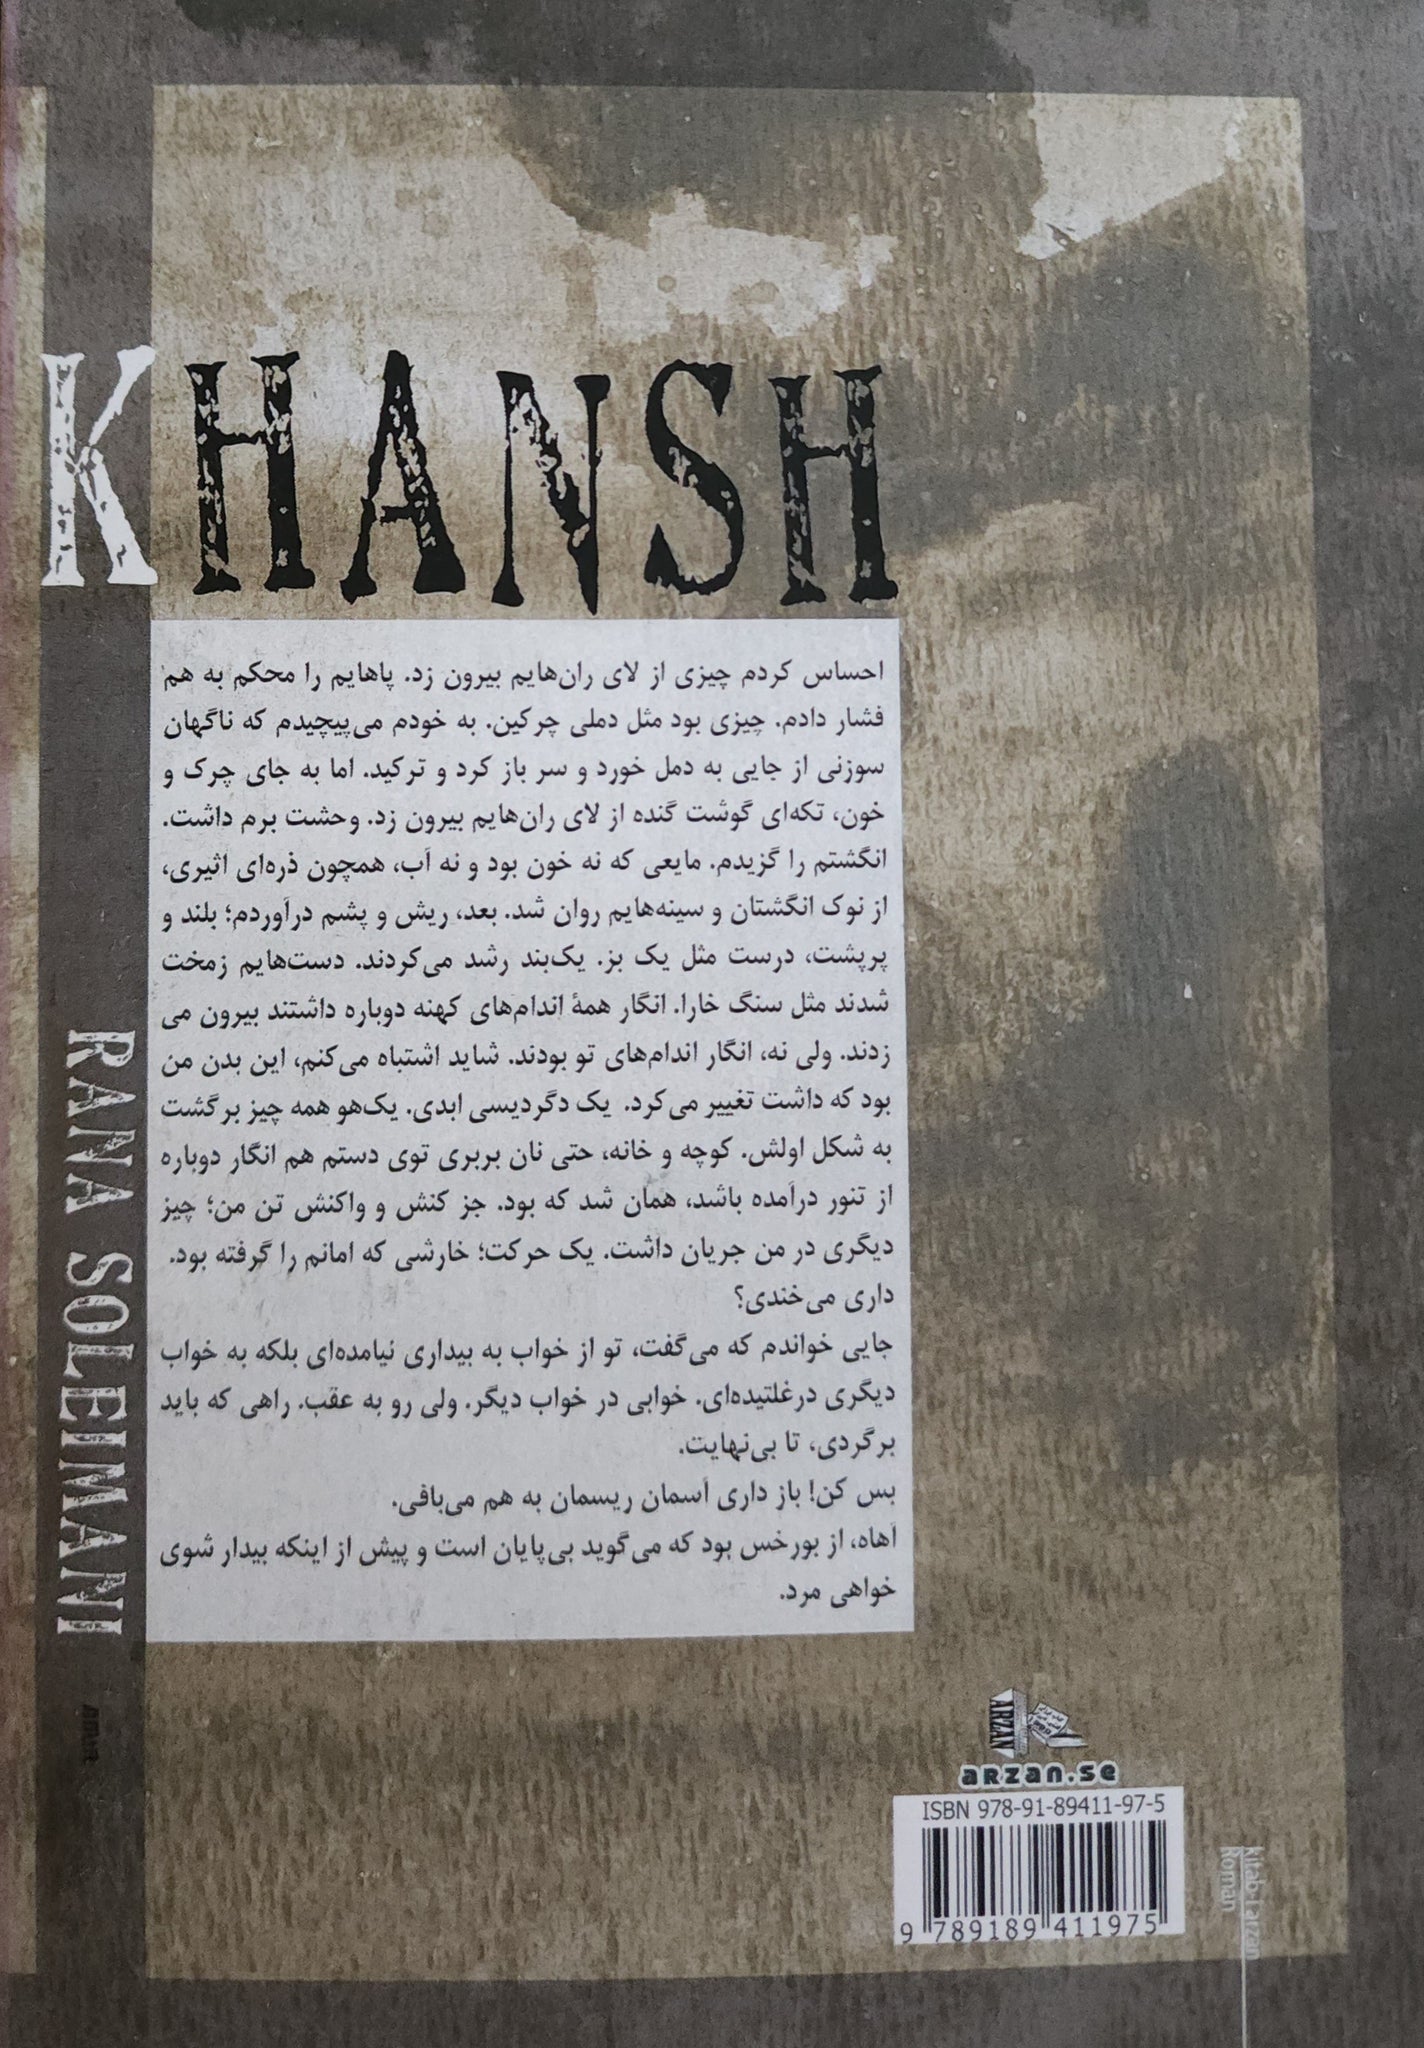 KHANSH
احساس کردم چیزی از لای ران‌هایم بیرون زد. پاهایم را محکم به هم
فشار دادم. چیزی بود مثل دملی چرکین. به خودم می‌پیچیدم که ناگهان
سوزنی از جایی به دمل خورد و سر باز کرد و ترکید. اما به جای چرک و
خون، تکه‌ای گوشت گنده از لای ران‌هایم بیرون زد. وحشت برم داشت.
انگشتم را گزیدم. مایعی که نه خون بود و نه آب، همچون ذره‌ای اثیری،
از نوک انگشتان و سینه‌هایم روان شد. بعد، ریش و پشم درآوردم؛ بلند و
پرپشت، درست مثل یک بز. یک‌بند رشد می‌کردند. دست‌هایم زمخت
شدند مثل سنگ خارا. انگار همهٔ اندام‌های کهنه دوباره داشتند بیرون می
زدند. ولی نه، انگار اندام‌های تو بودند. شاید اشتباه می‌کنم، این بدن من
بود که داشت تغییر می‌کرد. یک دگردیسی ابدی. یک‌هو همه چیز برگشت
به شکل اولش. کوچه و خانه، حتی نان بربری توی دستم هم انگار دوباره
از تنور درآمده باشد، همان شد که بود. جز کنش و واکنش تن من؛ چیز
دیگری در من جریان داشت. یک حرکت؛ خارشی که امانم را گرفته بود.
داری می‌خندی؟
جایی خواندم که می‌گفت، تو از خواب به بیداری نیامده‌ای بلکه به خواب
دیگری درغلتیده‌ای. خوابی در خواب دیگر. ولی رو به عقب. راهی که باید
برگردی، تا بی‌نهایت.
بس کن! باز داری آسمان ریسمان به هم می‌بافی.
آهاه، از بورخس بود که می‌گوید بی‌پایان است و پیش از اینکه بیدار شوی
خواهی مرد.
RANA SOLEIMANI
ARZAN
arzan.se
ISBN 978-91-89411-97-5
9 789189 411975
kitab-i arzan
Roman